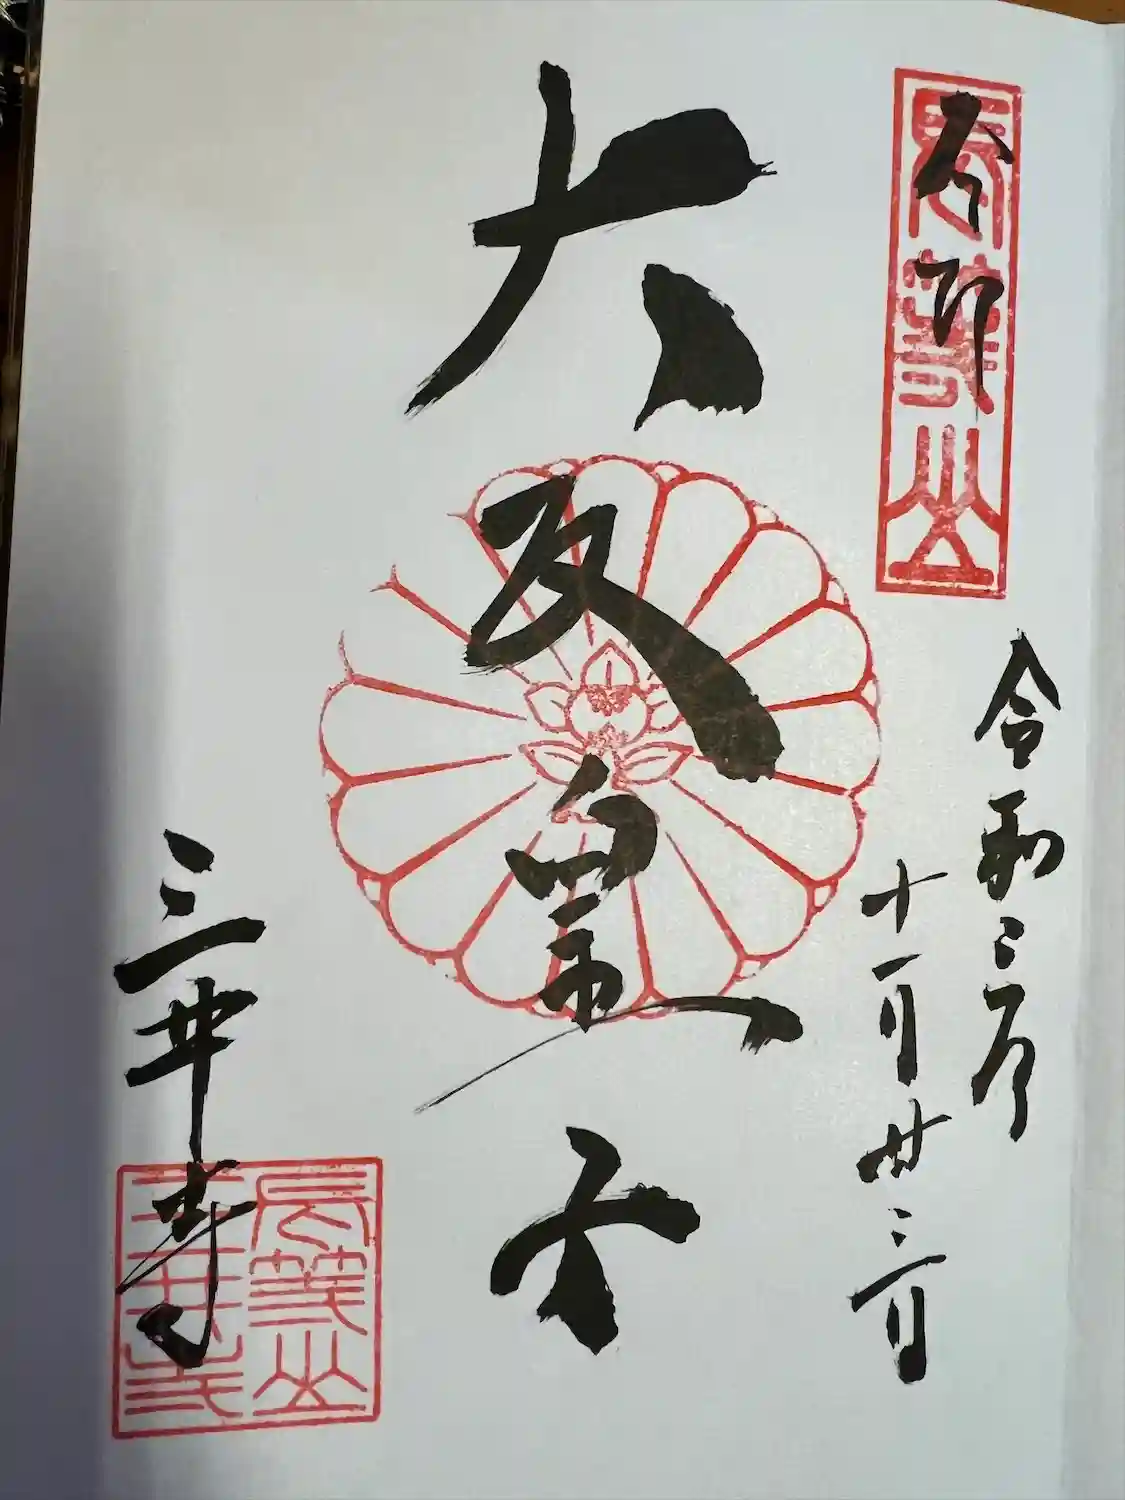 長等山
令和三年
十一月廿三日
大友皇子
三井寺
長等山
三井寺